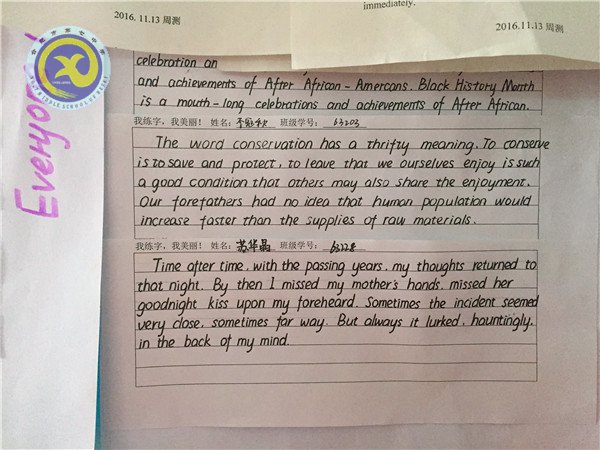 immediately.
2016.11.13 周测
2016.11.13 周测
Everyone!
celebration on
and achievements of After African-Amercans. Black History Month
is a mouth-long celebrations and achievements of After African.
我练字，我美丽！ 姓名： 班级学号： 63203
The word conservation has a thrifty meaning. To conserve
is to save and protect, to leave that we ourselves enjoy is such
a good condition that others may also share the enjoyment.
Our forefathers had no idea that human population would
increase faster than the supplies of raw materials.
我练字，我美丽！ 姓名： 苏华晶 班级学号： 63228
Time after time, with the passing years, my thoughts returned to
that night. By then I missed my mother's hands, missed her
goodnight kiss upon my foreheard. Sometimes the incident seemed
very close, sometimes far way. But always it lurked, hauntingly,
in the back of my mind.